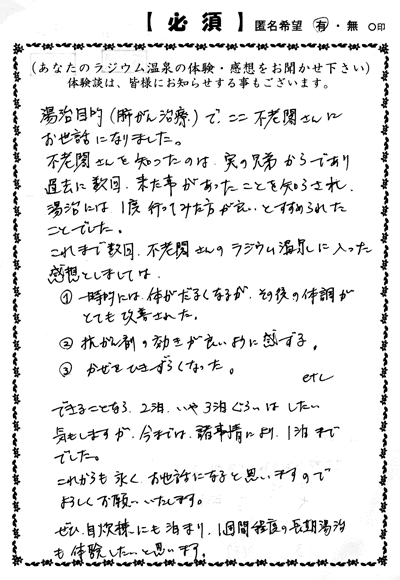 【必須】 匿名希望 有・無 ○印
(あなたのラジウム温泉の体験・感想をお聞かせ下さい)
体験談は、皆様にお知らせする事もございます。
湯治目的(肺がん治療)で、ここ不老閣さんに
お世話になりました。
不老閣さんを知ったのは、実の兄弟からであり
過去に数回、来た事があったことを知らされ、
湯治には1度行ってみた方が良いとすすめられた
ことでした。
これまで数回、不老閣さんのラジウム温泉に入った
感想としましては、
① 一時的には、体がだるくなるが、その後の体調が
とても改善された。
② 抗がん剤の効きが良いように感ずる。
③ かぜをひきずらくなった。
etc
できることなら、2泊、いや3泊ぐらいはしたい
気もしますが、今までは、諸事情により、1泊まで
でした。
これからも永く、お世話になると思いますので
よろしくお願いいたします。
ぜひ、自炊棟にも泊まり、1週間程度の長期湯治
も体験したいと思います。